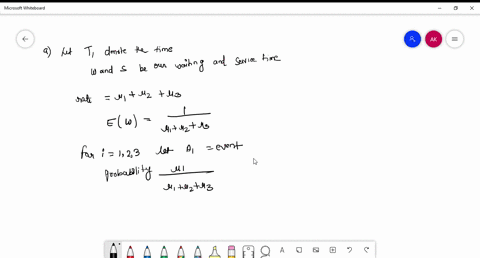 Microsoft Whiteboard
AK
a) Let T₁ denote the time
W and S be our waiting and service time
rate = μ₁ + μ₂ + μ₃
E(W) = 1 / μ₁+μ₂+μ₃
for i = 1,2,3 let A₁ = event
Probability μ₁ / μ₁+μ₂+μ₃